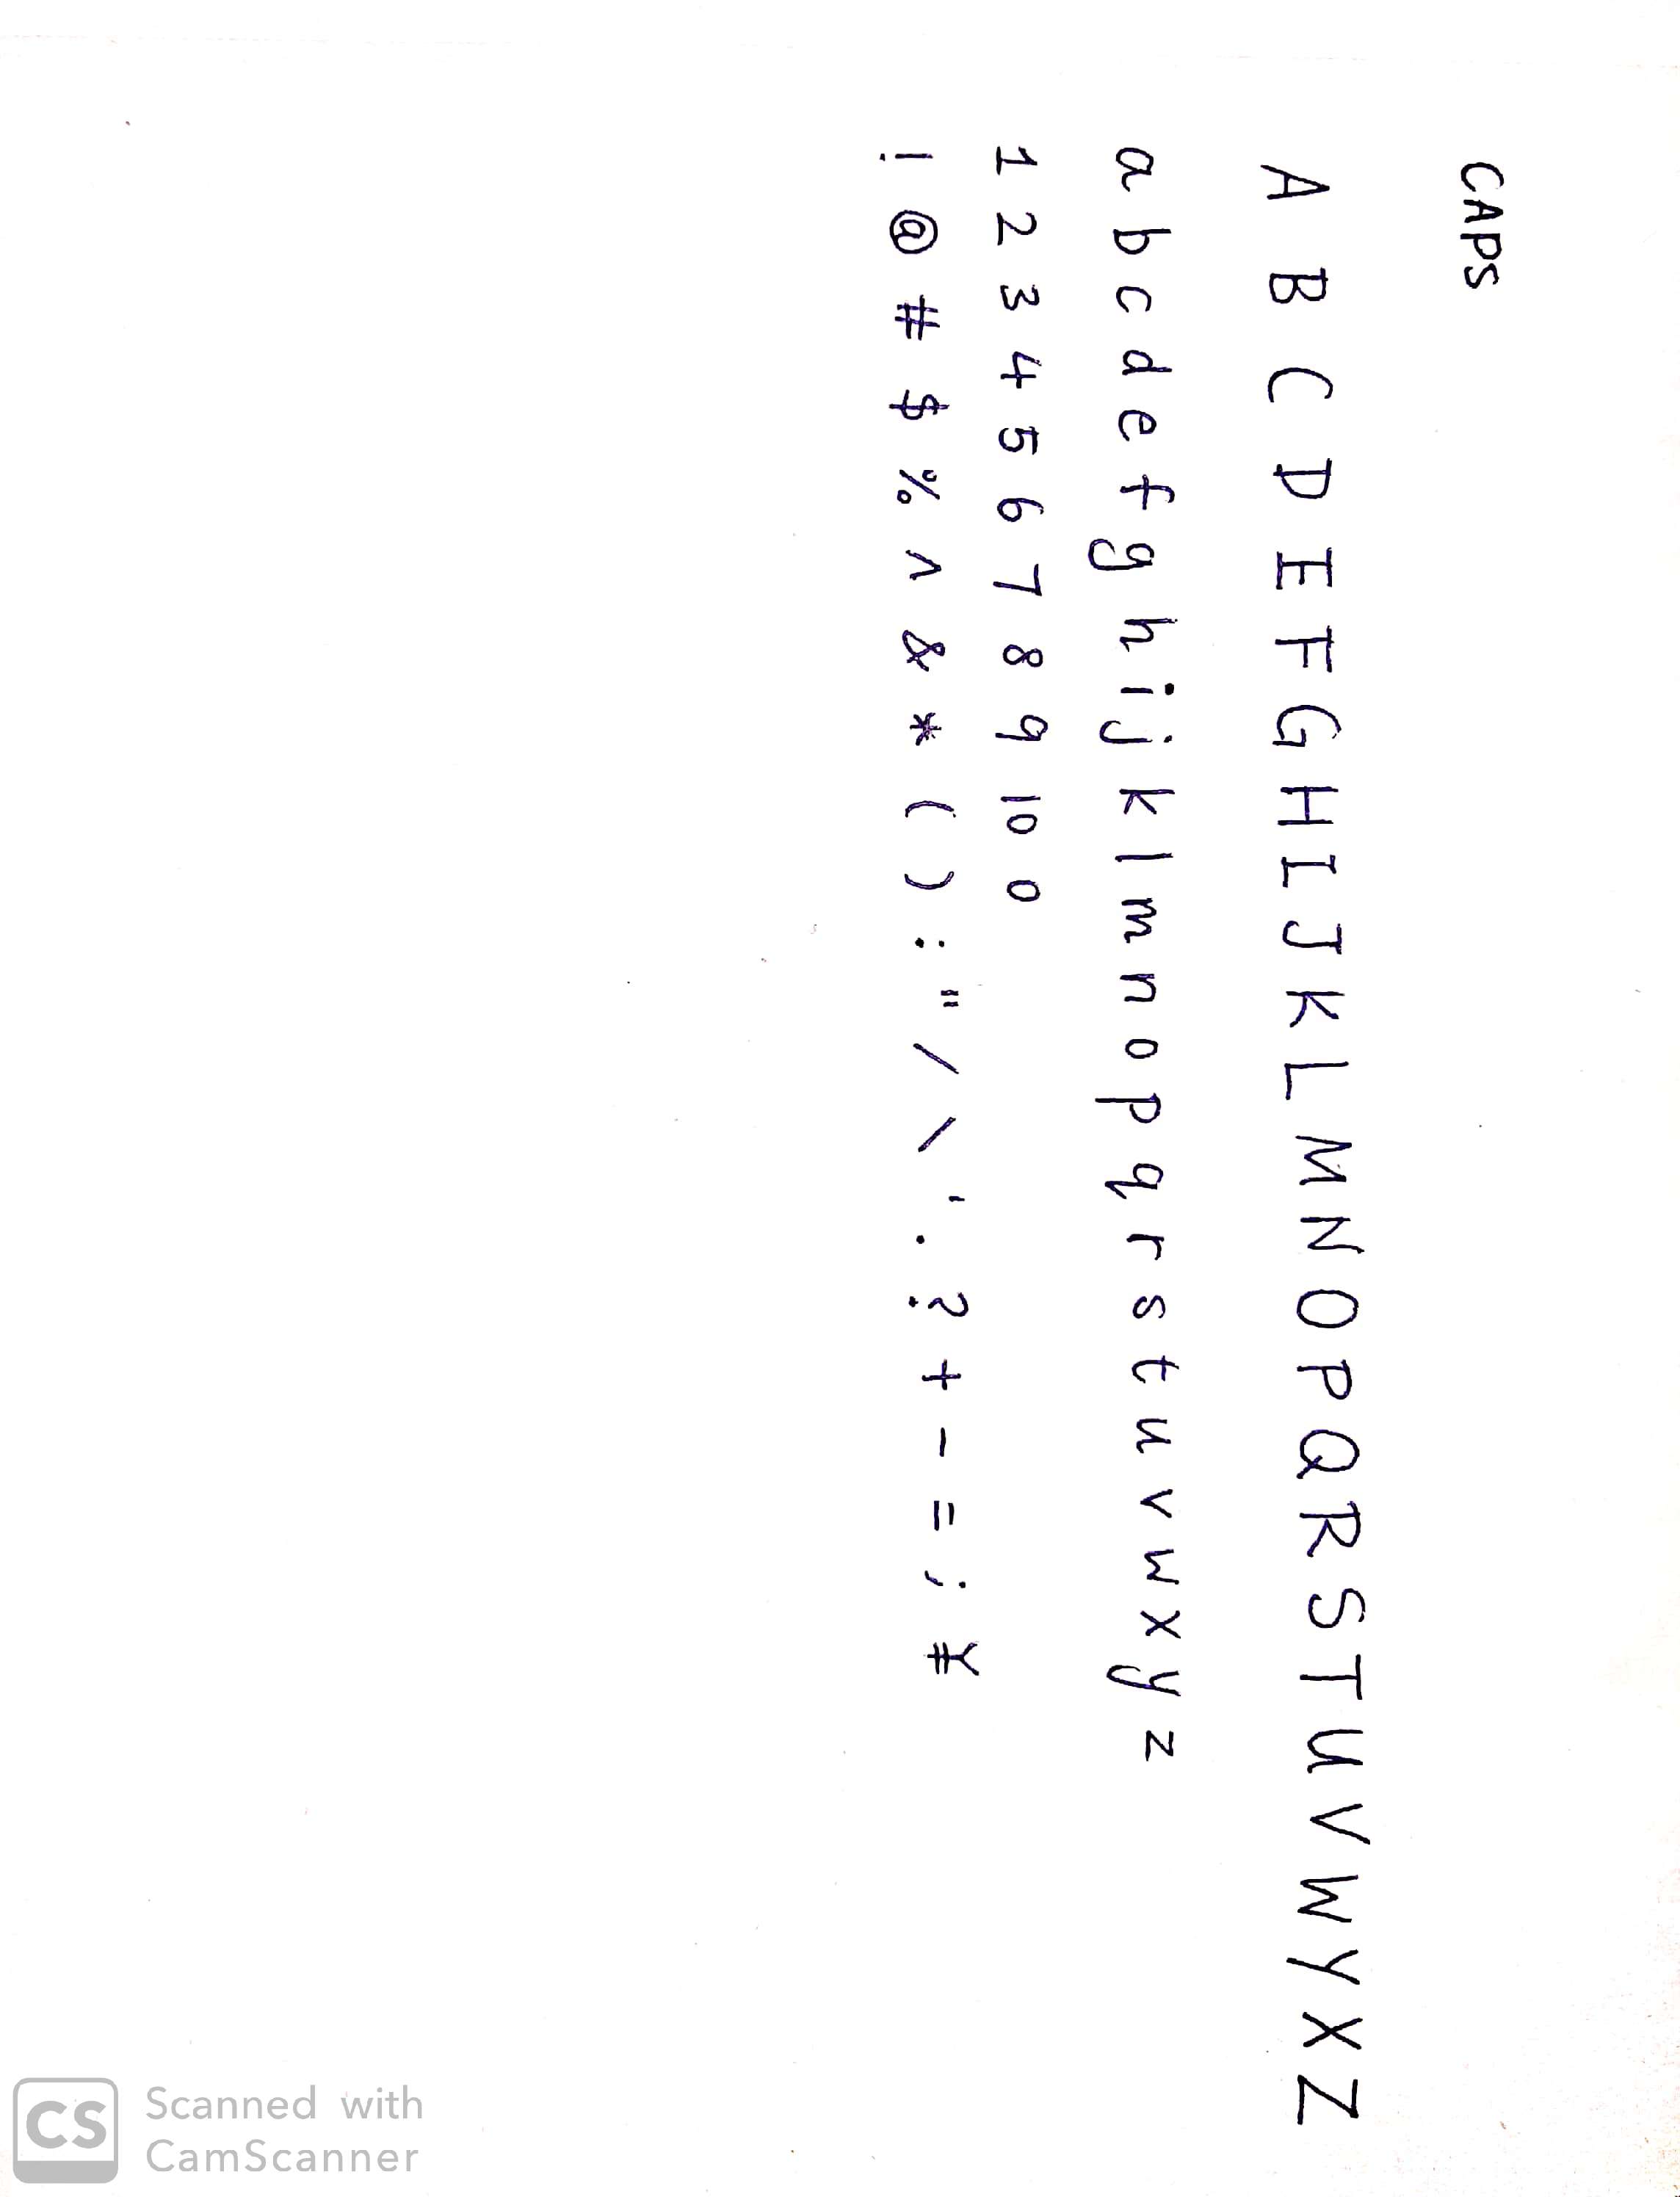 CAPS
A B C D E F G H I J K L M N O P Q R S T U V W Y X Z
a b c d e f g h i j k l m n o p q r s t u v w x y z
1 2 3 4 5 6 7 8 9 10 0
! @ # $ % ^ & * ( ) : " / \ ' . ? + - = ; ¥
CS
Scanned with
CamScanner